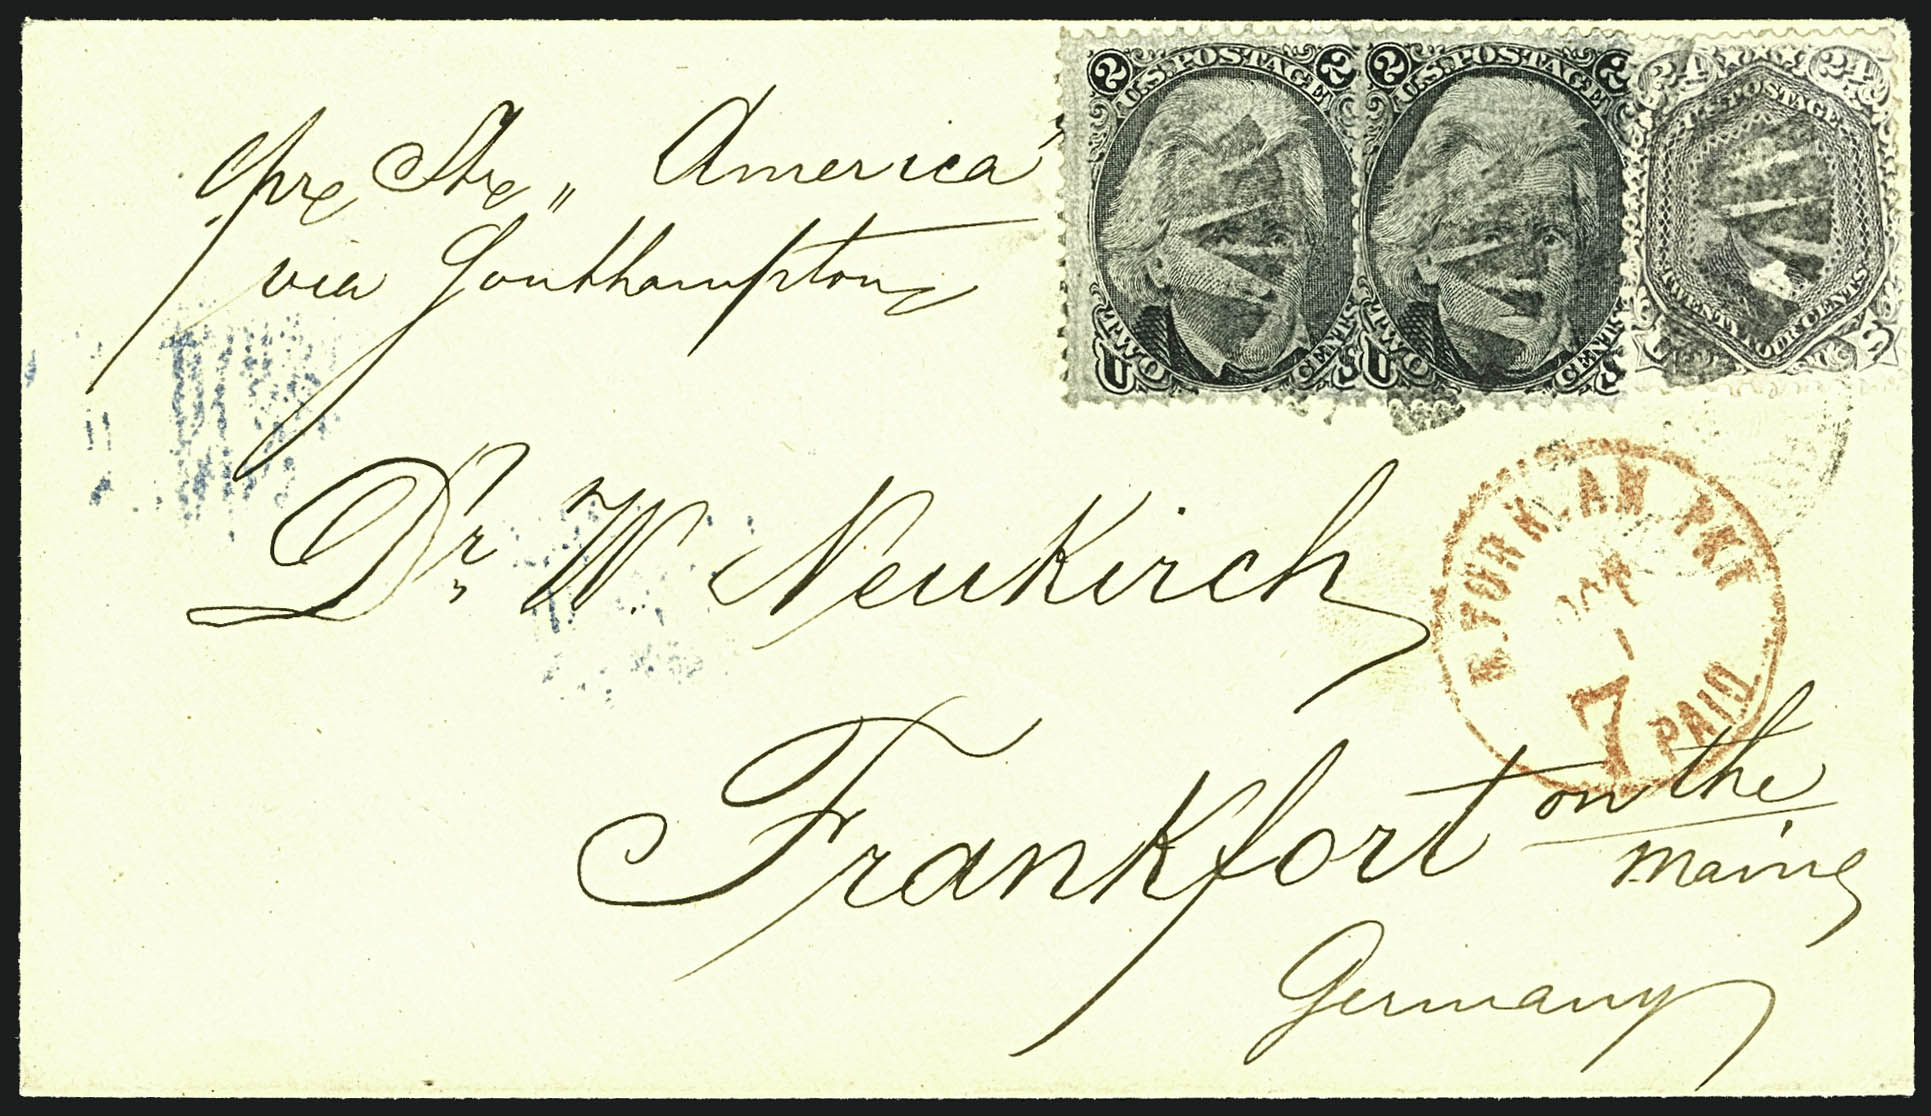 pre Str „ America"
via Southampton
2 U.S. POSTAGE 2
TWO CENTS
U S
2 U.S. POSTAGE 2
TWO CENTS
U S
24 24
U.S. POSTAGE
TWENTY FOUR CENTS
U S
Dr. W. Neukirch
N. YORK AM PKT
7
PAID
Frankfort on the
Maine
Germany